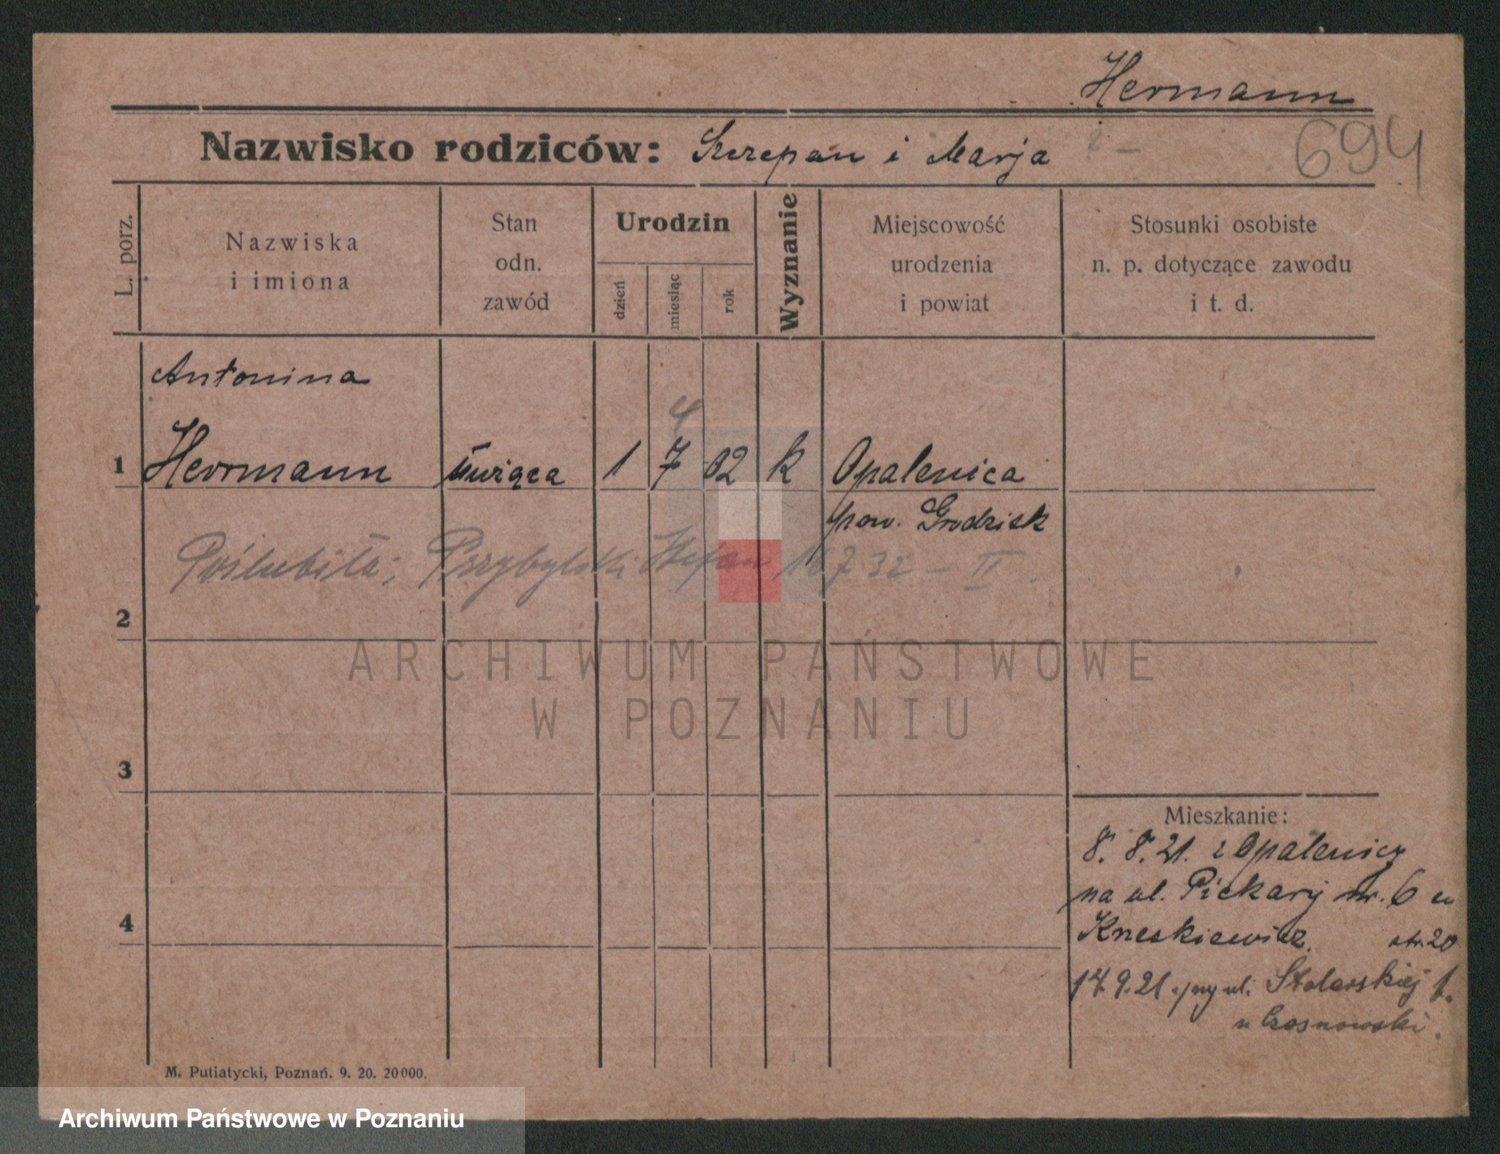 Hermann
694
Nazwisko rodziców: Szczepan i Marja
L. porz.
Nazwiska
i imiona
Stan
odn.
zawód
Urodzin
dzień
miesiąc
rok
Wyznanie
Miejscowość
urodzenia
i powiat
Stosunki osobiste
n. p. dotyczące zawodu
i t. d.
Antonina
4
1 Herrmann 1 7 02 k Opalenica
pow. Grodzisk
Poślubiła; Przybylski Stefan 7 32 – II
2
ARCHIWUM PAŃSTWOWE
W POZNANIU
3
Mieszkanie:
8. 8. 21. z Opalenicy
na ul. Piekary nr. 6 u
4
str. 20
17 9. 21 przy ul. Stolarskiej 1.
u Czosnowski.
M. Putiatycki, Poznań. 9. 20. 20000.
Archiwum Państwowe w Poznaniu